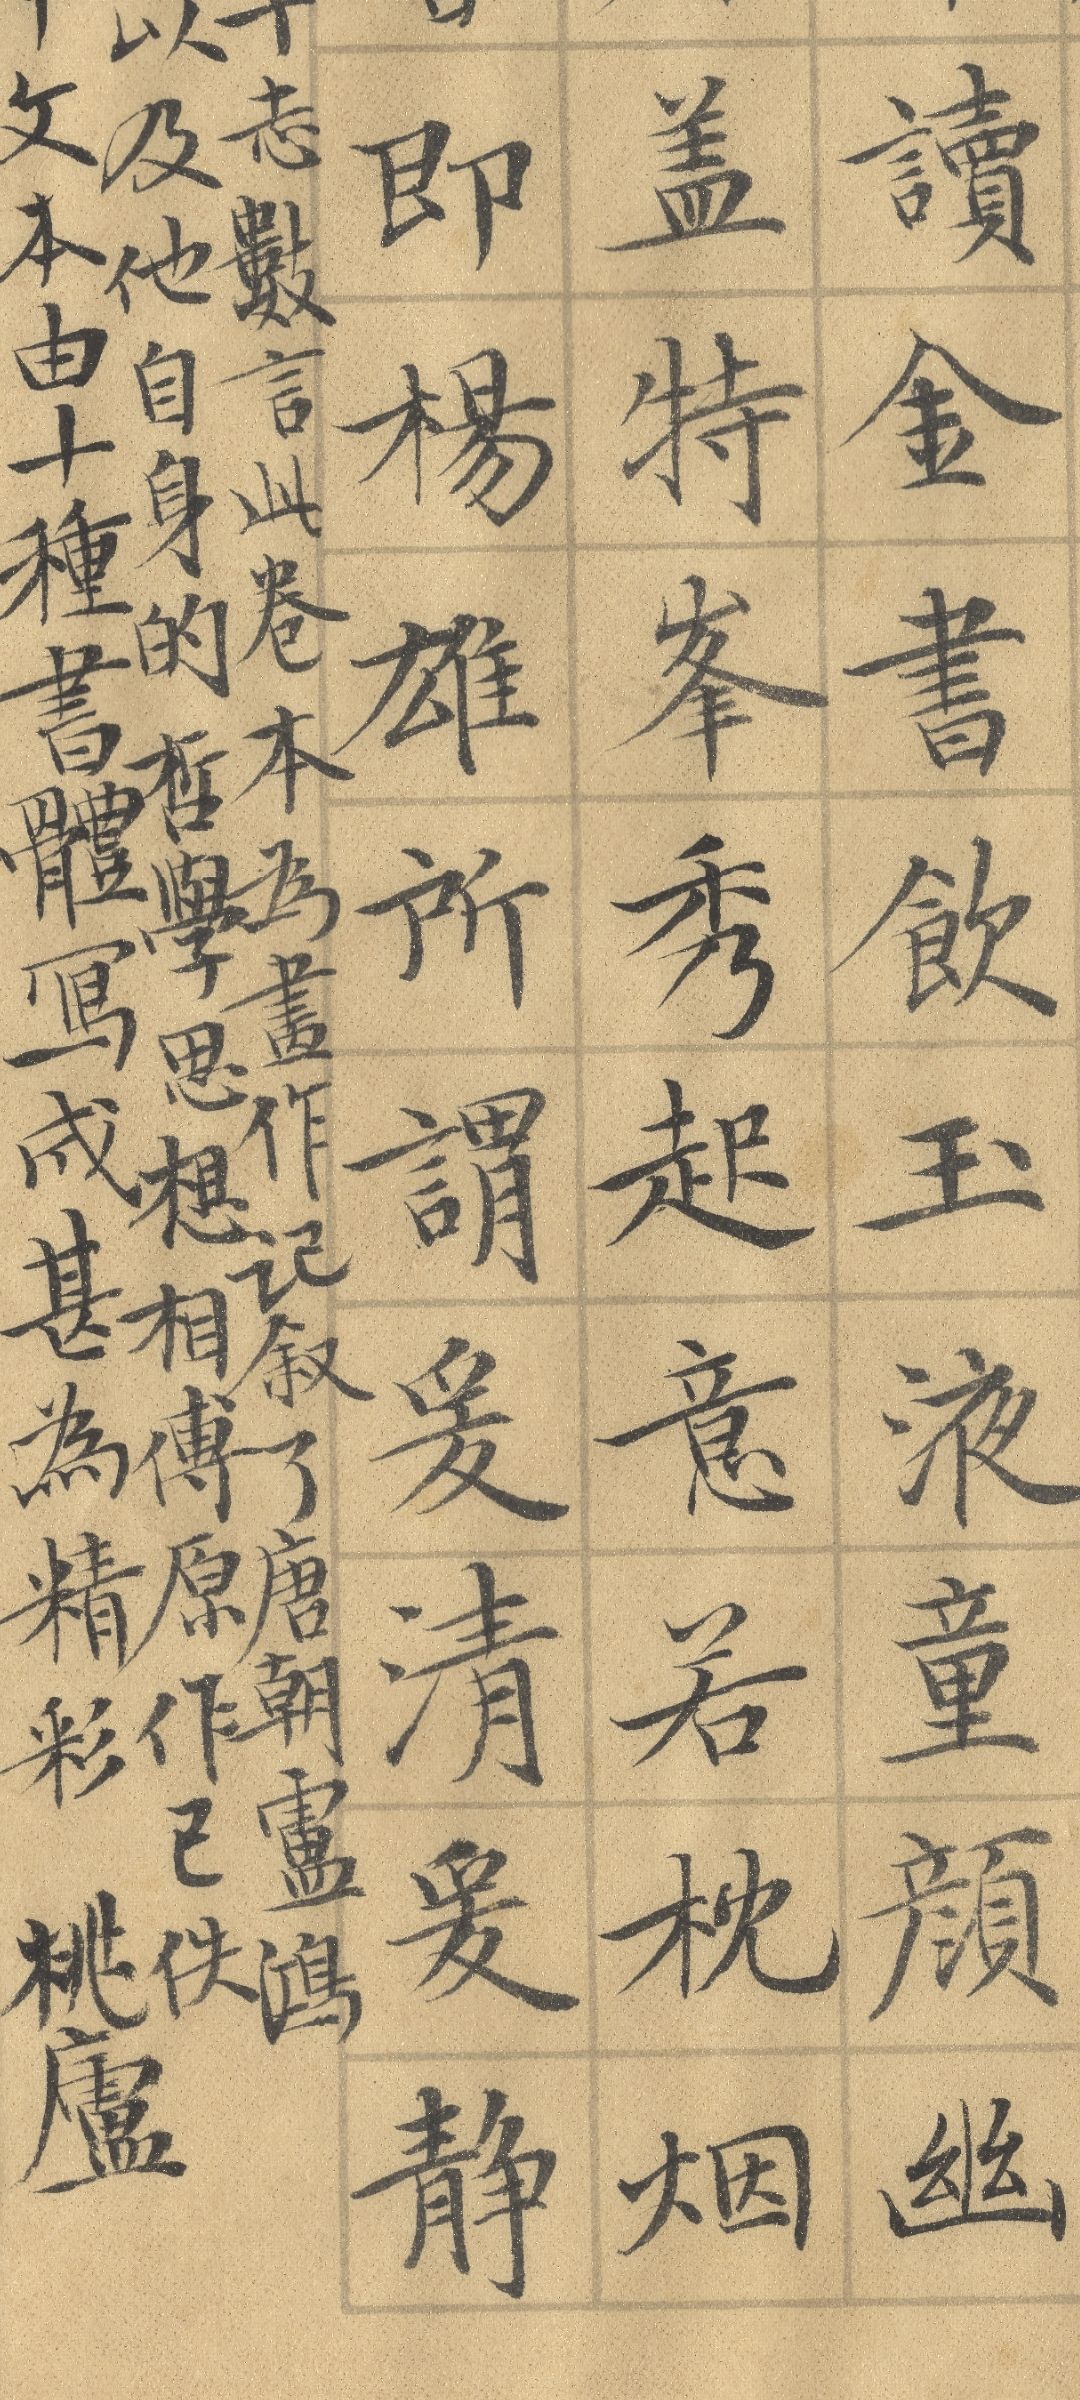 讀金書飲玉液童顏幽
蓋特峯秀起意若枕烟
即楊雄所謂爰清爰静
十志數言此卷本為畫作记叙了唐朝盧鴻
以及他自身的哲學思想相傅原作已佚
文本由十種書體寫成甚為精彩 桃廬